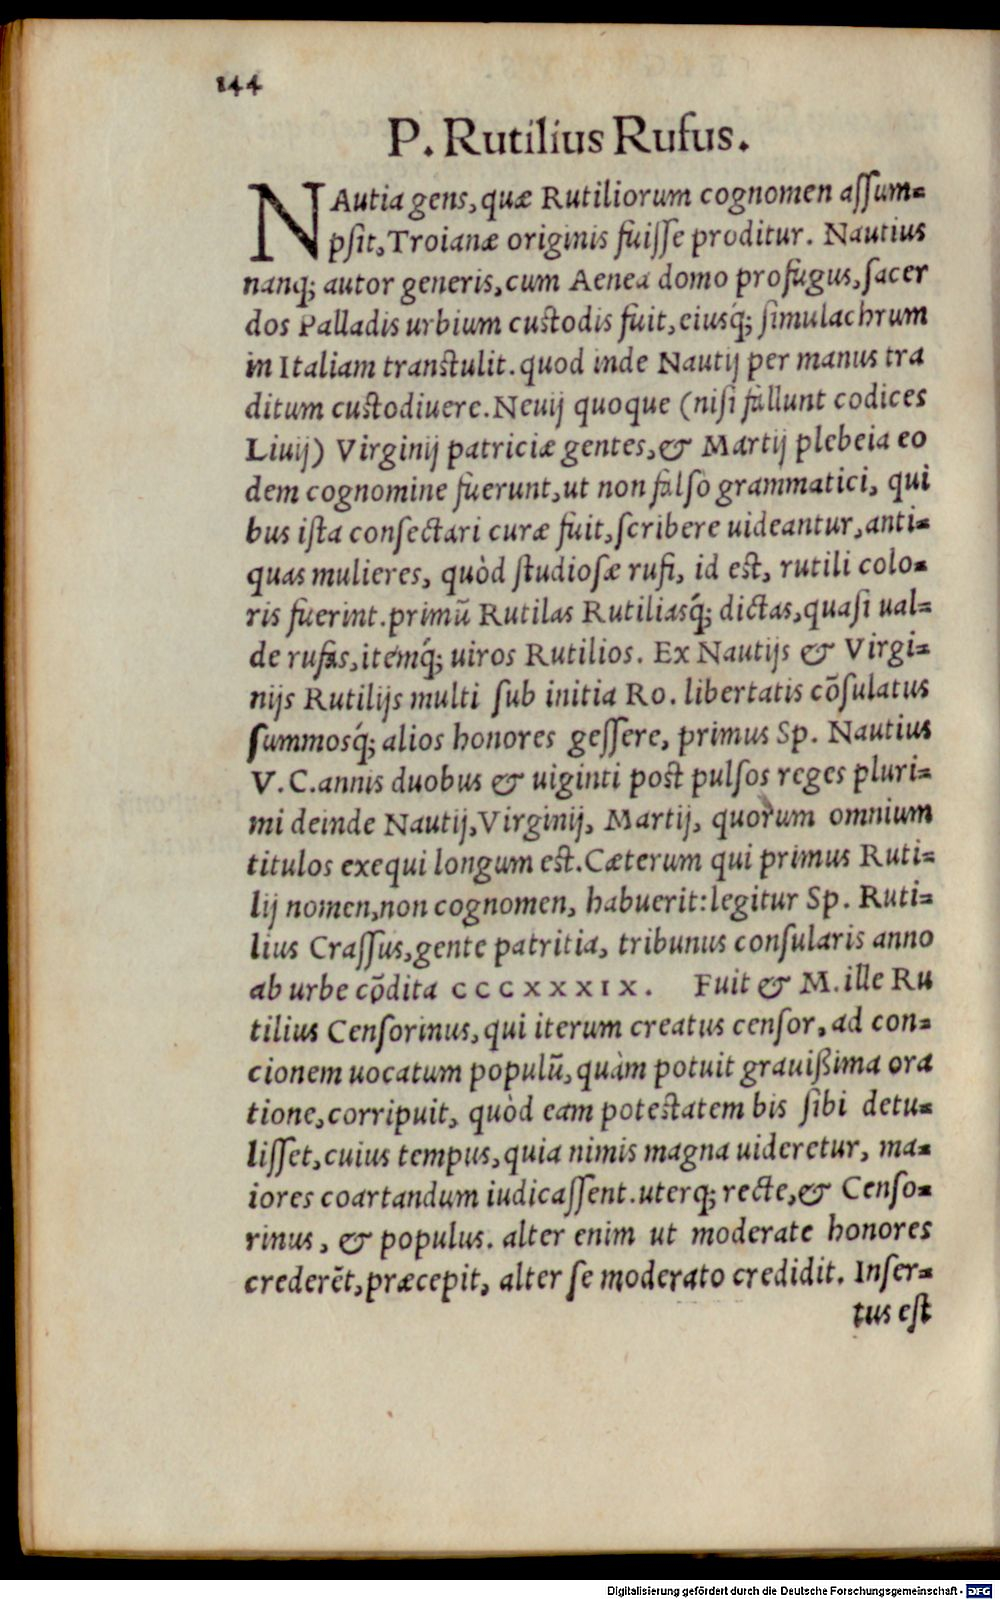 144
P. Rutilius Rufus.
NAutia gens, quæ Rutiliorum cognomen assum=
psit, Troianæ originis fuisse proditur. Nautius
nanq; autor generis, cum Aenea domo profugus, sacer
dos Palladis urbium custodis fuit, eiusq́; simulachrum
in Italiam transtulit. quod inde Nautij per manus tra
ditum custodiuere. Neuij quoque (nisi fallunt codices
Liuij) Virginij patriciæ gentes, & Martij plebeia eo
dem cognomine fuerunt, ut non falsò grammatici, qui
bus ista consectari curæ fuit, scribere uideantur, anti=
quas mulieres, quòd studiosæ rufi, id est, rutili colo=
ris fuerint. primũ Rutilas Rutiliasq́; dictas, quasi ual=
de rufas, itemq́; uiros Rutilios. Ex Nautijs & Virgi=
nijs Rutilijs multi sub initia Ro. libertatis cõsulatus
summosq́; alios honores gessere, primus Sp. Nautius
V. C. annis duobus & uiginti post pulsos reges pluri=
mi deinde Nautij, Virginij, Martij, quorum omnium
titulos exequi longum est. Cæterum qui primus Ruti=
lij nomen, non cognomen, habuerit: legitur Sp. Ruti=
lius Crassus, gente patritia, tribunus consularis anno
ab urbe cõdita CCCXXXIX. Fuit & M. ille Ru
tilius Censorinus, qui iterum creatus censor, ad con=
cionem uocatum populũ, quàm potuit grauißima ora
tione, corripuit, quòd eam potestatem bis sibi detu=
lisset, cuius tempus, quia nimis magna uideretur, ma=
iores coartandum iudicassent. uterq; recte, & Censo=
rinus, & populus. alter enim ut moderate honores
crederẽt, præcepit, alter se moderato credidit. Inser=
tus est
Digitalisierung gefördert durch die Deutsche Forschungsgemeinschaft - DFG